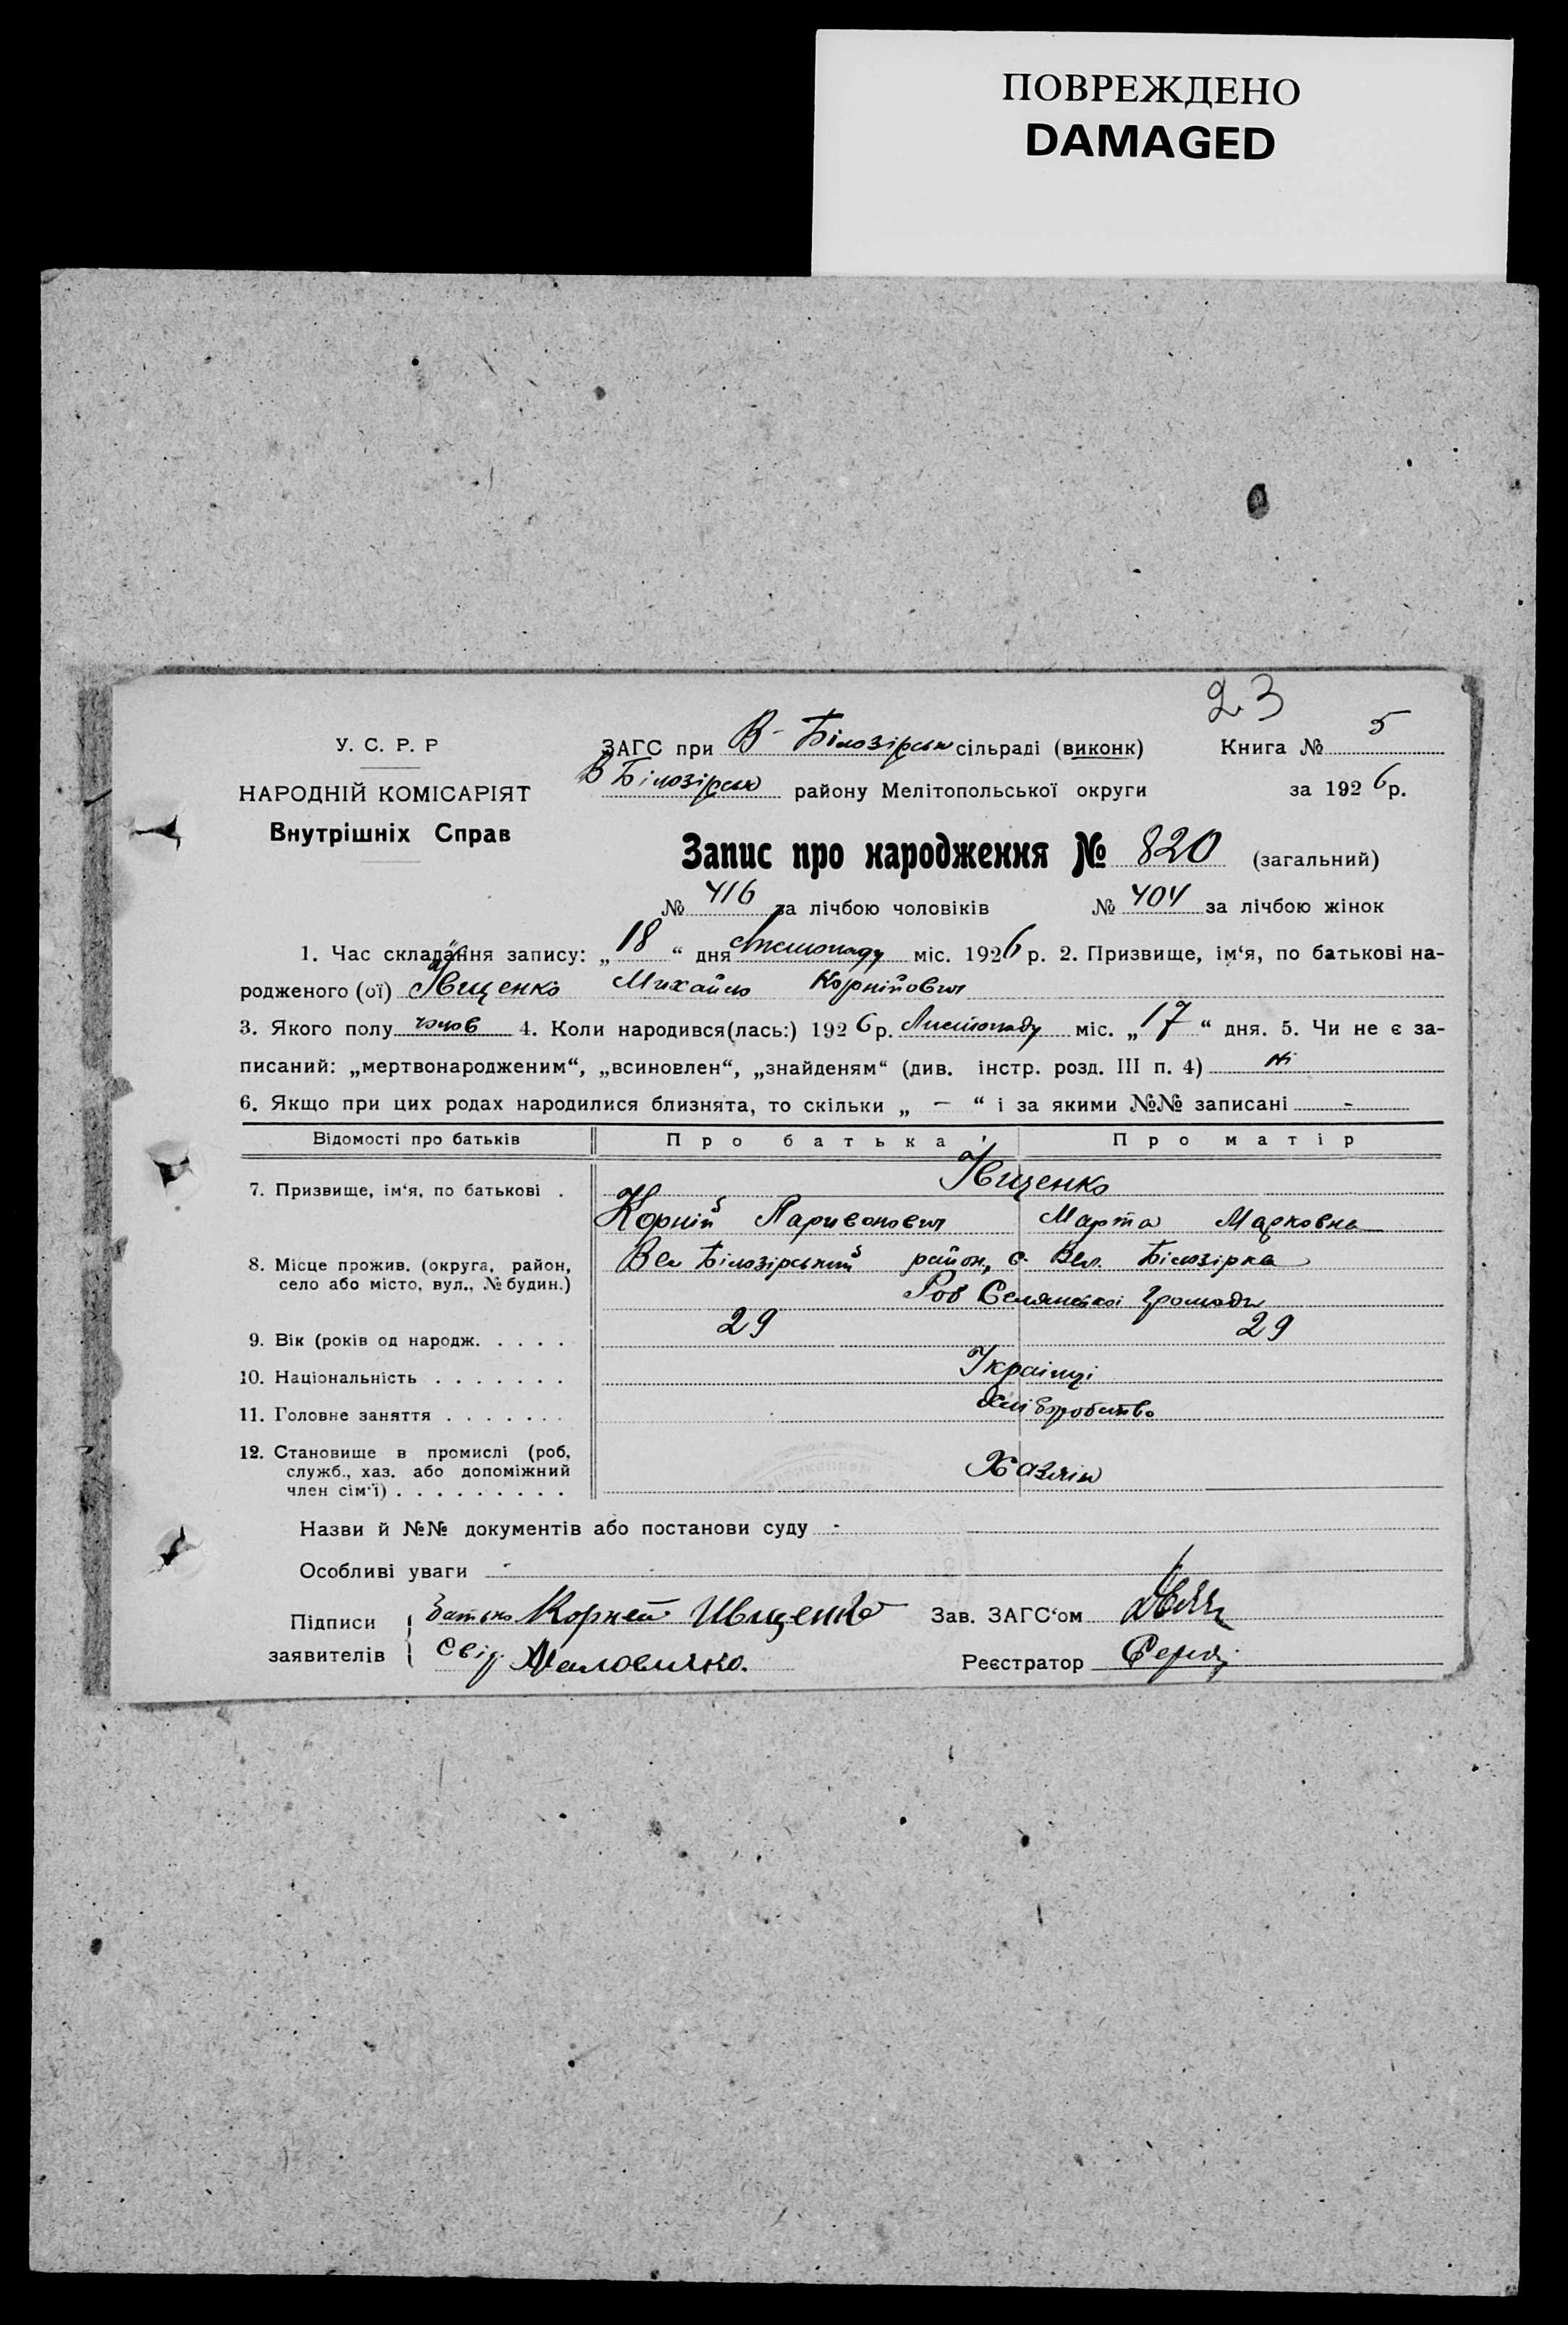 ПОВРЕЖДЕНО
DAMAGED
23
У. С. Р. Р
НАРОДНІЙ КОМІСАРІЯТ
Внутрішніх Справ
ЗАГС при В-Білозірськ сільраді (виконк) Книга № 5
В Білозірськ району Мелітопольської округи за 1926 р.
Запис про народження № 820 (загальний)
№ 416 за лічбою чоловіків № 404 за лічбою жінок
1. Час складання запису: „ 18 “ дня Листопаду міс. 1926 р. 2. Призвище, ім‘я, по батькові на-
родженого (ої) Івщенко Михайло Корнійович
3. Якого полу чолов 4. Коли народився(лась:) 1926 р. Листопаду міс. „ 17 “ дня. 5. Чи не є за-
писаний: „мертвонародженим“, „всиновлен“, „знайденям“ (див. інстр. розд. III п. 4) ні
6. Якщо при цих родах народилися близнята, то скільки „ — “ і за якими №№ записані -
Відомості про батьків Про батька Про матір
7. Призвище, ім‘я, по батькові . Івщенко
Корній Ларивонович Марта Марковна
8. Місце прожив. (округа, район, село або місто, вул., № будин.) Вел Білозірський район, с. Вел. Білозірка
Роб Селянської Громади
9. Вік (років од народж. . . . . 29 29
10. Національність . . . . . . . Українці
11. Головне заняття . . . . . . . Хліборобство
12. Становище в промислі (роб, служб., хаз. або допоміжний член сім‘ї) . . . . . . . . . Хазяїн
Назви й №№ документів або постанови суду -
Особливі уваги -
Підписи заявителів Батько Корней Ивщенко Зав. ЗАГС‘ом
Свід. Маловичко. Реєстратор